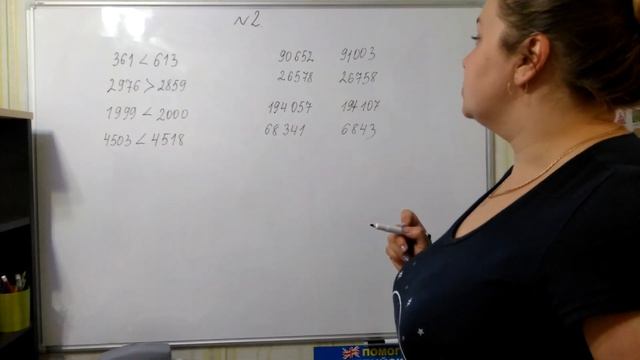 №2.
361 < 613
2976 > 2859
1999 < 2000
4503 < 4518
90652 91003
26578 26758
194057 194107
68341 6843
ПОМОГ